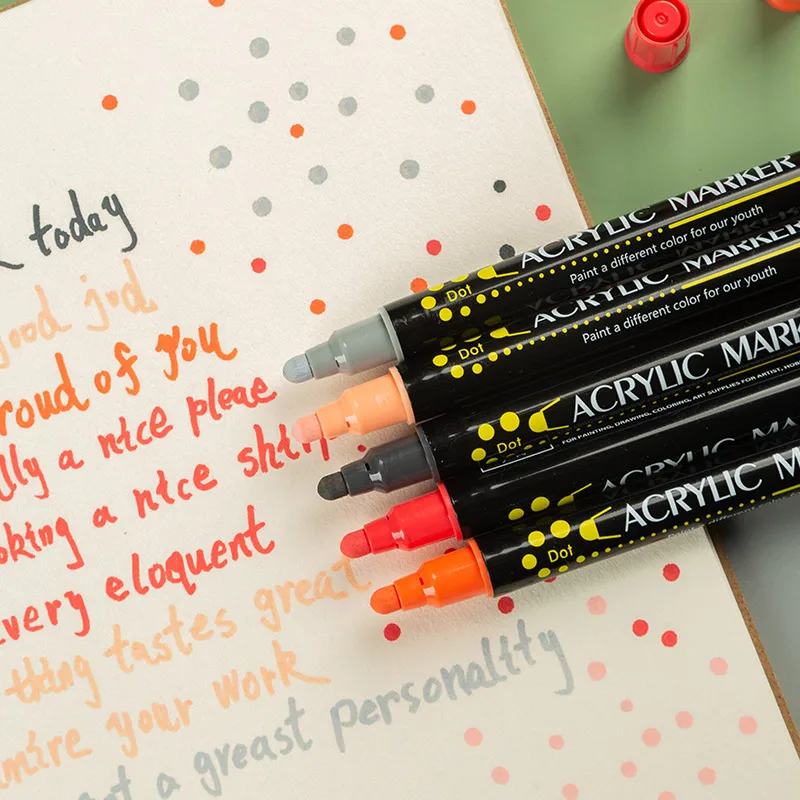 today
good jud
roud of you
lly a nice pleae
oking a nice
very eloquent
thing tastes great
mire your work
a greast personality
Dot ACRYLIC MARKER
Paint a different color for our youth
Dot ACRYLIC MARKER
Paint a different color for our youth
Dot ACRYLIC MARK
FOR PAINTING, DRAWING, COLORING, ART SUPPLIES FOR ARTIST, HOB
ACRYLIC MA
Dot ACRYLIC M